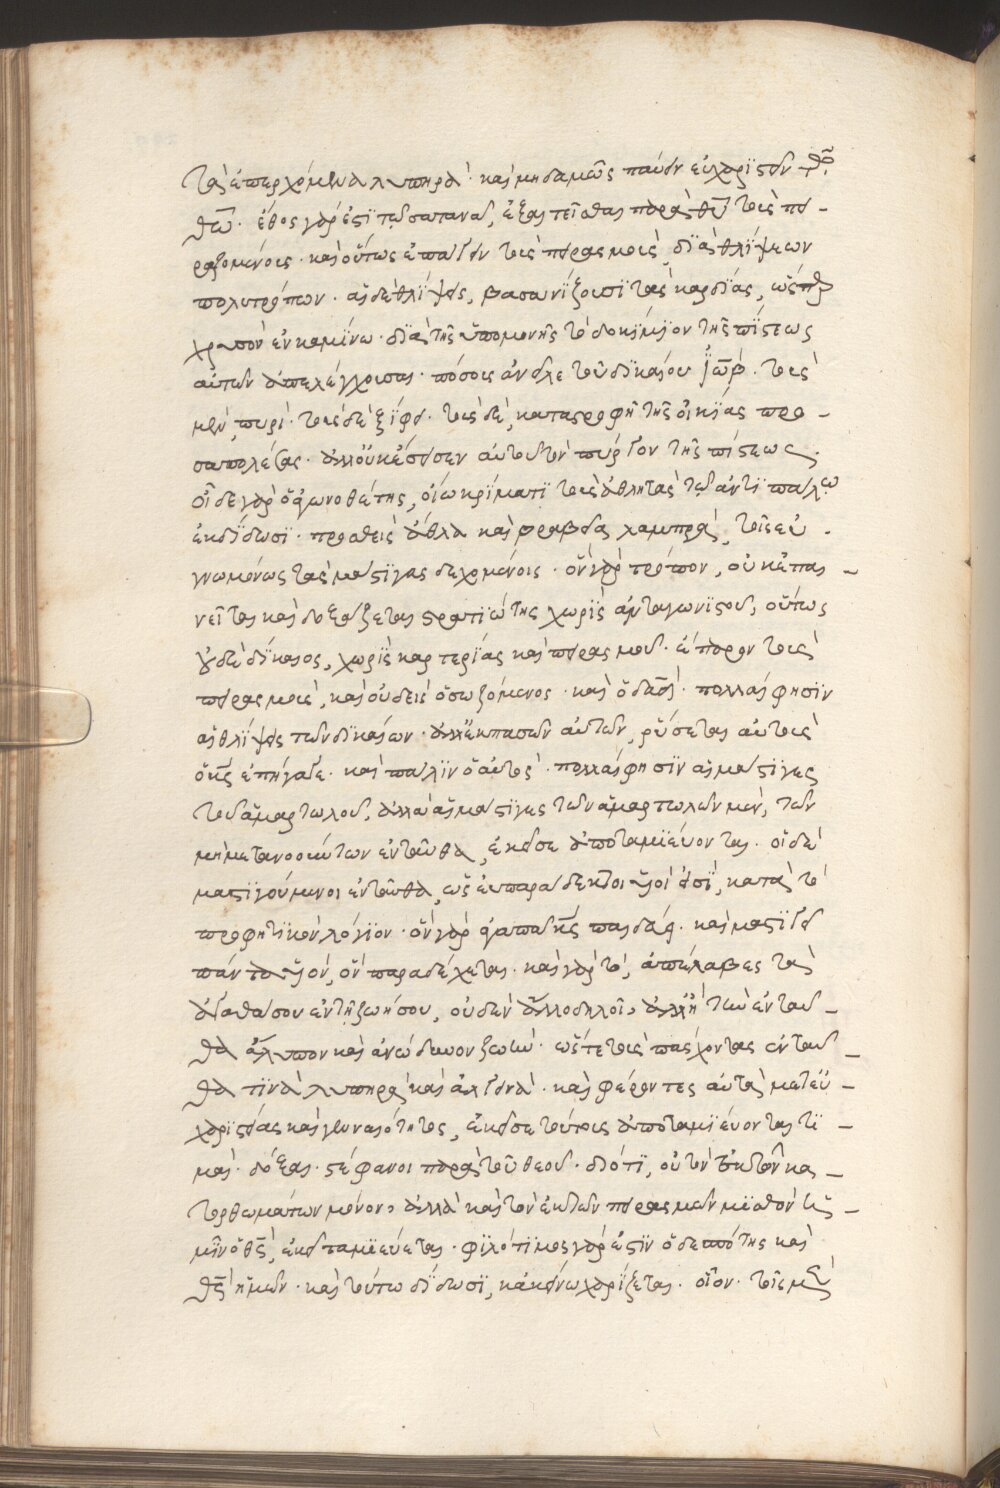 τὰ ἐπερχόμενα λυπηρά· καὶ μηδαμῶς παύειν εὐχαριστεῖν τῶ
θῶ· ἔθος γάρ ἐστι τῶ σατανᾶ, ἐξαιτεῖσθαι παρὰ θῦ τοῖς πει-
ραζομένοις· καὶ οὕτως ἐπάγειν τοῖς πειρασμοῖς, διὰ θλίψεων
πολυτρόπων· αἱ δὲ θλίψεις, βασανίζουσι τὰς καρδίας, ὥσπερ
χρυσὸν ἐν καμίνω· διὰ τῆς ὑπομονῆς τὸ δοκίμιον τῆς πίστεως
αὐτῶν ἀπελέγχουσαι· πόσοις ἀνεῖλε τοῦ δικαίου ἰώβ· τοῖς
μὲν, πυρί· τοῖς δὲ ξίφει· τοῖς δὲ, καταστροφῆ τῆς οἰκίας προ-
σαπολέσας· ἀλλ' οὐκ ἔσεισεν αὐτοῦ τὸν πύργον τῆς πίστεως.
οἶδε γὰρ ὁ ἀγωνοθέτης, οἵω κρίματι τοῖς ἀθλητὰς τῶ ἀντιπάλω
ἐκδίδωσι· προθεὶς ἆθλα καὶ βραβεῖα λαμπρὰ, τοῖς εὐ-
γνωμόνως τὰς μάστιγας δεχομένοις· ὃν γὰρ τρόπον, οὐκ ἐπαι-
νεῖται καὶ δοξάζεται στρατιώτης χωρὶς ἀνταγωνιστοῦ, οὕτως
οὐδὲ δίκαιος, χωρὶς καρτερίας καὶ πειρασμοῦ· ἔπαρον τοῖς
πειρασμοῖς, καὶ οὐδεὶς ὁ σωζόμενος· καὶ ὁ δαδ· πολλαί φησιν
αἱ θλίψεις τῶν δικαίων· ἀλλ' ἐκ πασῶν αὐτῶν, ῥύσεται αὐτοῖς
ὁ κς ἐπήγαγε· καὶ πάλιν ὁ αὐτός· πολλαί φησιν αἱ μάστιγες
τοῦ ἁμαρτωλοῦ, ἀλλὰ αἱ μάστιγες τῶν ἁμαρτωλῶν μὲν, τῶν
μὴ μετανοούντων ἐνταῦθα, ἐκεῖσε ἀποταμιεύονται· οἱ δὲ
μαστιγούμενοι ἐνταῦθα, ὡς εὐπαράδεκτοι υἱοί εἰσι, κατὰ τὸ
προφητικὸν λόγιον· ὃν γὰρ ἀγαπᾶ κς παιδεύει· καὶ μαστιγεῖ
πάντα υἱὸν, ὃν παραδέχεται· καὶ γὰρ τὸ, ἀπέλαβες τὰ
ἀγαθά σου ἐν τῆ ζωῆ σου, οὐδὲν ἄλλο δηλοῖ, ἀλλ' ἢ τὴν ἐνταῦ-
θα ἄλυπον καὶ ἀνώδυνον ζωήν· ὥστε τοῖς πάσχοντας ἐνταῦ-
θα τινὰ λυπηρὰ καὶ ἀλγεινὰ· καὶ φέροντες αὐτὰ μετ' εὐ-
χαριστίας καὶ γενναιότητος, ἐκεῖσε τούτοις ἀποταμιεύονται τι-
μαὶ· δόξαι· στέφανοι παρὰ τοῦ θεοῦ· διότι, οὐ τὸν ἐκ τῶν κα-
τορθωμάτων μόνον, ἀλλὰ καὶ τὸν ἐκ τῶν πειρασμῶν μισθὸν ὑ-
μῖν ὁ θς, ἐκεῖ ταμιεύεται· φιλότιμος γάρ ἐστιν ὁ δεσπότης καὶ
θς ἡμῶν· καὶ τούτω δίδωσι, κἀκείνω χαρίζεται· οἷον· τοῖς μὲν